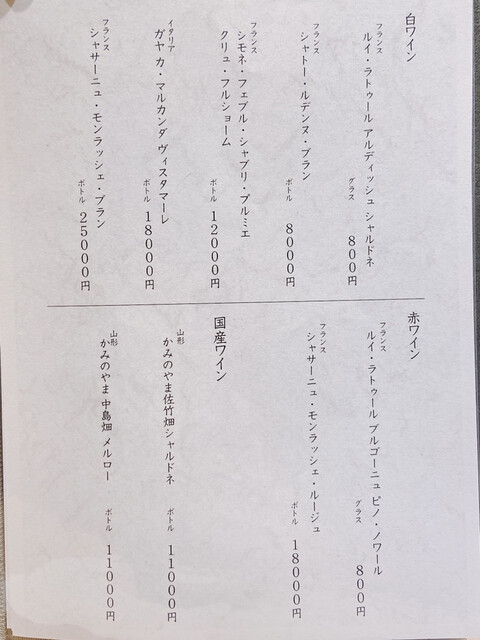 白ワイン
フランス
ルイ・ラトゥール アルディッシュ シャルドネ
グラス 800円
フランス
シャトー・ルデンヌ・ブラン
ボトル 8000円
フランス
シモネ・フェブル・シャブリ・プルミエ
クリュ・フルショーム
ボトル 12000円
イタリア
ガヤ カ・マルカンダ ヴィスタマーレ
ボトル 18000円
フランス
シャサーニュ・モンラッシェ・ブラン
ボトル 25000円
赤ワイン
フランス
ルイ・ラトゥール ブルゴーニュ ピノ・ノワール
グラス 800円
フランス
シャサーニュ・モンラッシェ・ルージュ
ボトル 18000円
国産ワイン
山形
かみのやま佐竹畑シャルドネ
ボトル 11000円
山形
かみのやま 中島畑 メルロー
ボトル 11000円